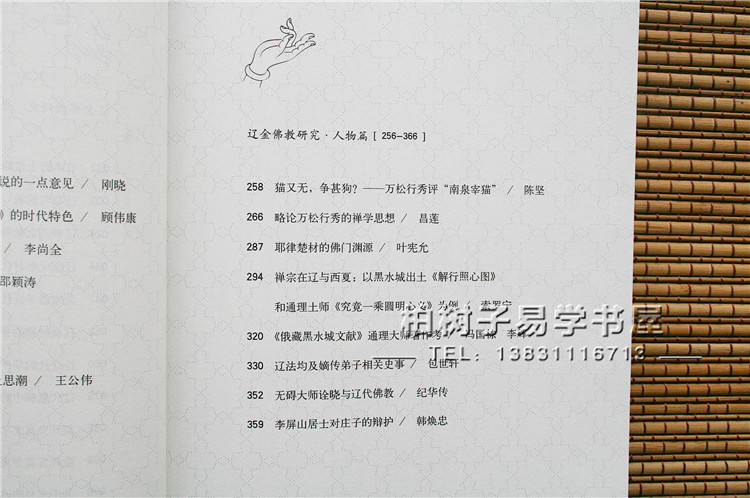 说的一点意见 / 刚晓
》的时代特色 / 顾伟康
/ 李尚全
邵颖涛
思潮 / 王公伟
辽金佛教研究·人物篇 [256-366]
258 猫又无,争甚狗?——万松行秀评“南泉宰猫” / 陈坚
266 略论万松行秀的禅学思想 / 昌莲
287 耶律楚材的佛门渊源 / 叶宪允
294 禅宗在辽与西夏:以黑水城出土《解行照心图》
和通理土师《究竟一乘圆明心义》为例 / 索罗宁
320 《俄藏黑水城文献》通理大师著作考 / 冯国栋 李
330 辽法均及嫡传弟子相关史事 / 包世轩
352 无碍大师诠晓与辽代佛教 / 纪华传
359 李屏山居士对庄子的辩护 / 韩焕忠
柏树子易学书屋
TEL:13831116713